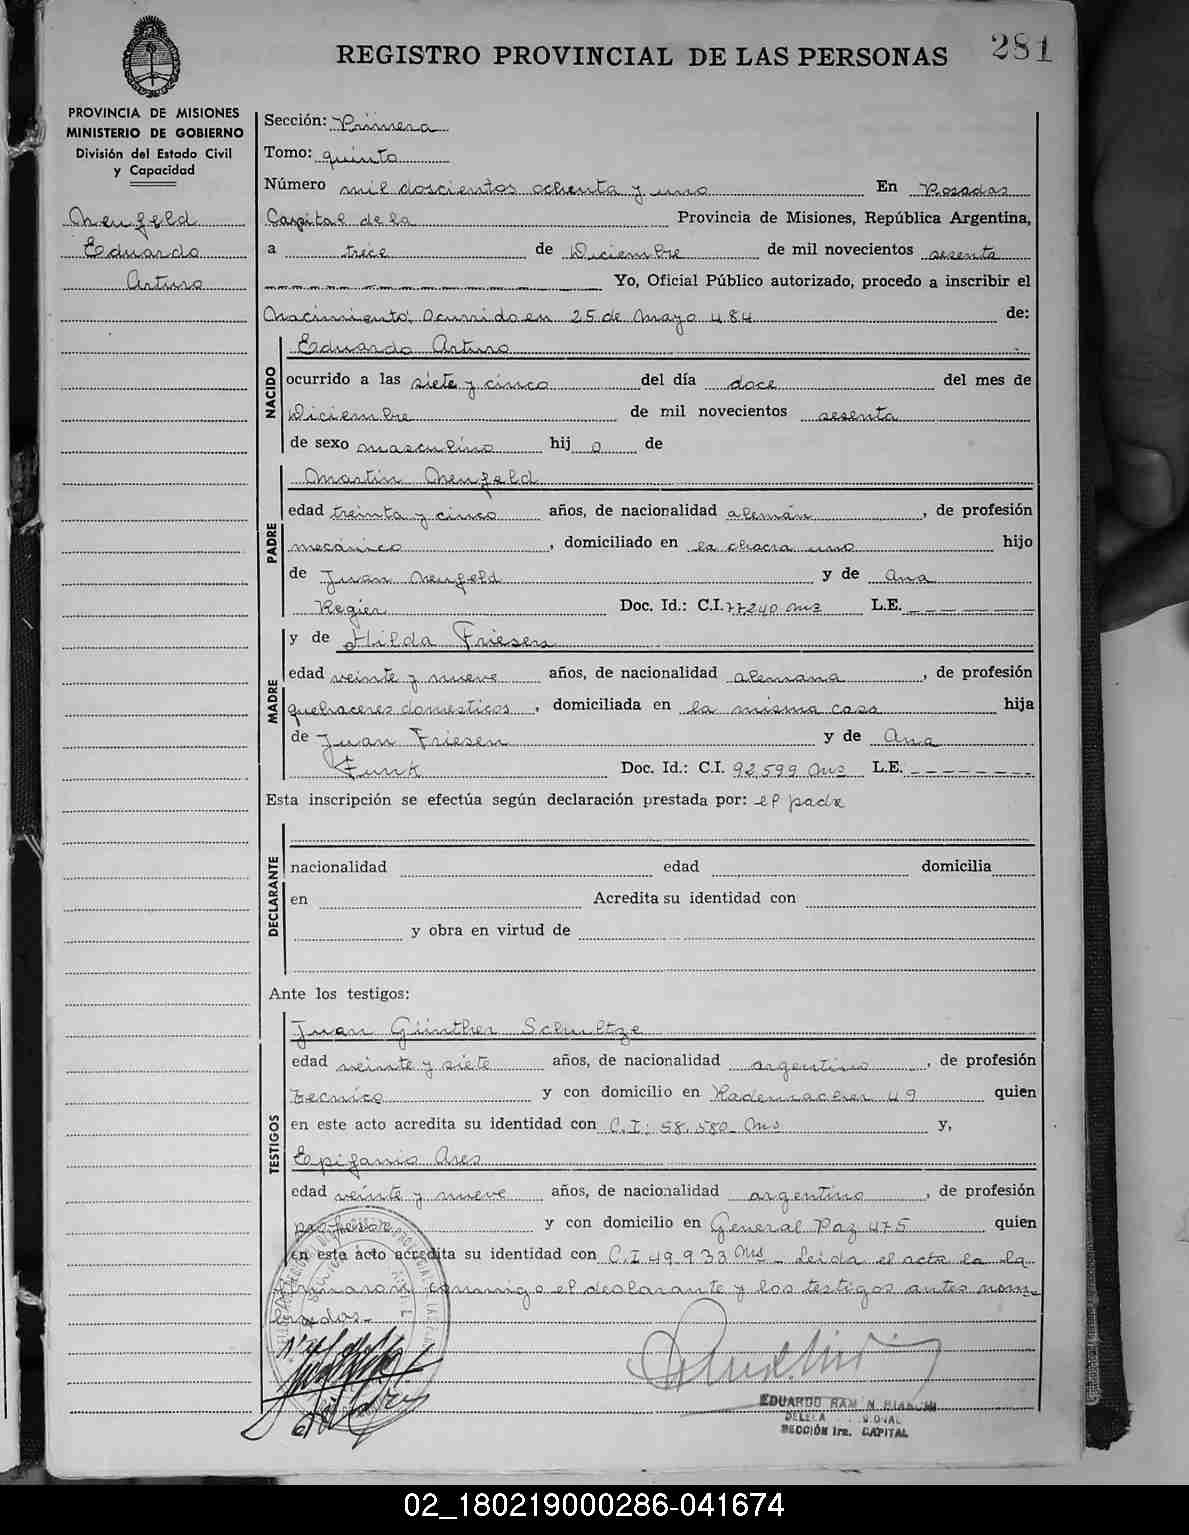 REGISTRO PROVINCIAL DE LAS PERSONAS
281
PROVINCIA DE MISIONES
MINISTERIO DE GOBIERNO
División del Estado Civil
y Capacidad
Neufeld
Eduardo
Arturo
Sección: Primera
Tomo: quinto
Número mil doscientos ochenta y uno En Posadas
Capital de la Provincia de Misiones, República Argentina,
a trece de Diciembre de mil novecientos sesenta
Yo, Oficial Público autorizado, procedo a inscribir el
Nacimiento, Ocurrido en 25 de Mayo 484 de:
NACIDO
Eduardo Arturo
ocurrido a las siete y cinco del día doce del mes de
Diciembre de mil novecientos sesenta
de sexo masculino hij o de
PADRE
Martin Neufeld
edad treinta y cinco años, de nacionalidad alemán, de profesión
mecánico, domiciliado en la chacra uno hijo
de Juan Neufeld y de Ana
Regier Doc. Id.: C.I. 77240 Mns L.E.
MADRE
y de Hilda Friesen
edad veinte y nueve años, de nacionalidad alemana, de profesión
quehaceres domesticos, domiciliada en la misma casa hija
de Juan Friesen y de Ana
Funk Doc. Id.: C.I. 92,599 Mns L.E.
Esta inscripción se efectúa según declaración prestada por: el padre
DECLARANTE
nacionalidad edad domicilia
en Acredita su identidad con
y obra en virtud de
Ante los testigos:
TESTIGOS
Juan Günther Schultze
edad veinte y siete años, de nacionalidad argentino, de profesión
tecnico y con domicilio en Rademacher 49 quien
en este acto acredita su identidad con C.I: 58.580 Mns y,
Epifanio Ares
edad veinte y nueve años, de nacionalidad argentino, de profesión
profesor y con domicilio en General Paz 475 quien
en este acto acredita su identidad con C.I 49.933 Mns - Leida el acta la
conmigo el declarante y los testigos antes nom-
brados.-
EDUARDO RAMON BIANCHI
SECCIÓN 1ra. CAPITAL
02_180219000286-041674